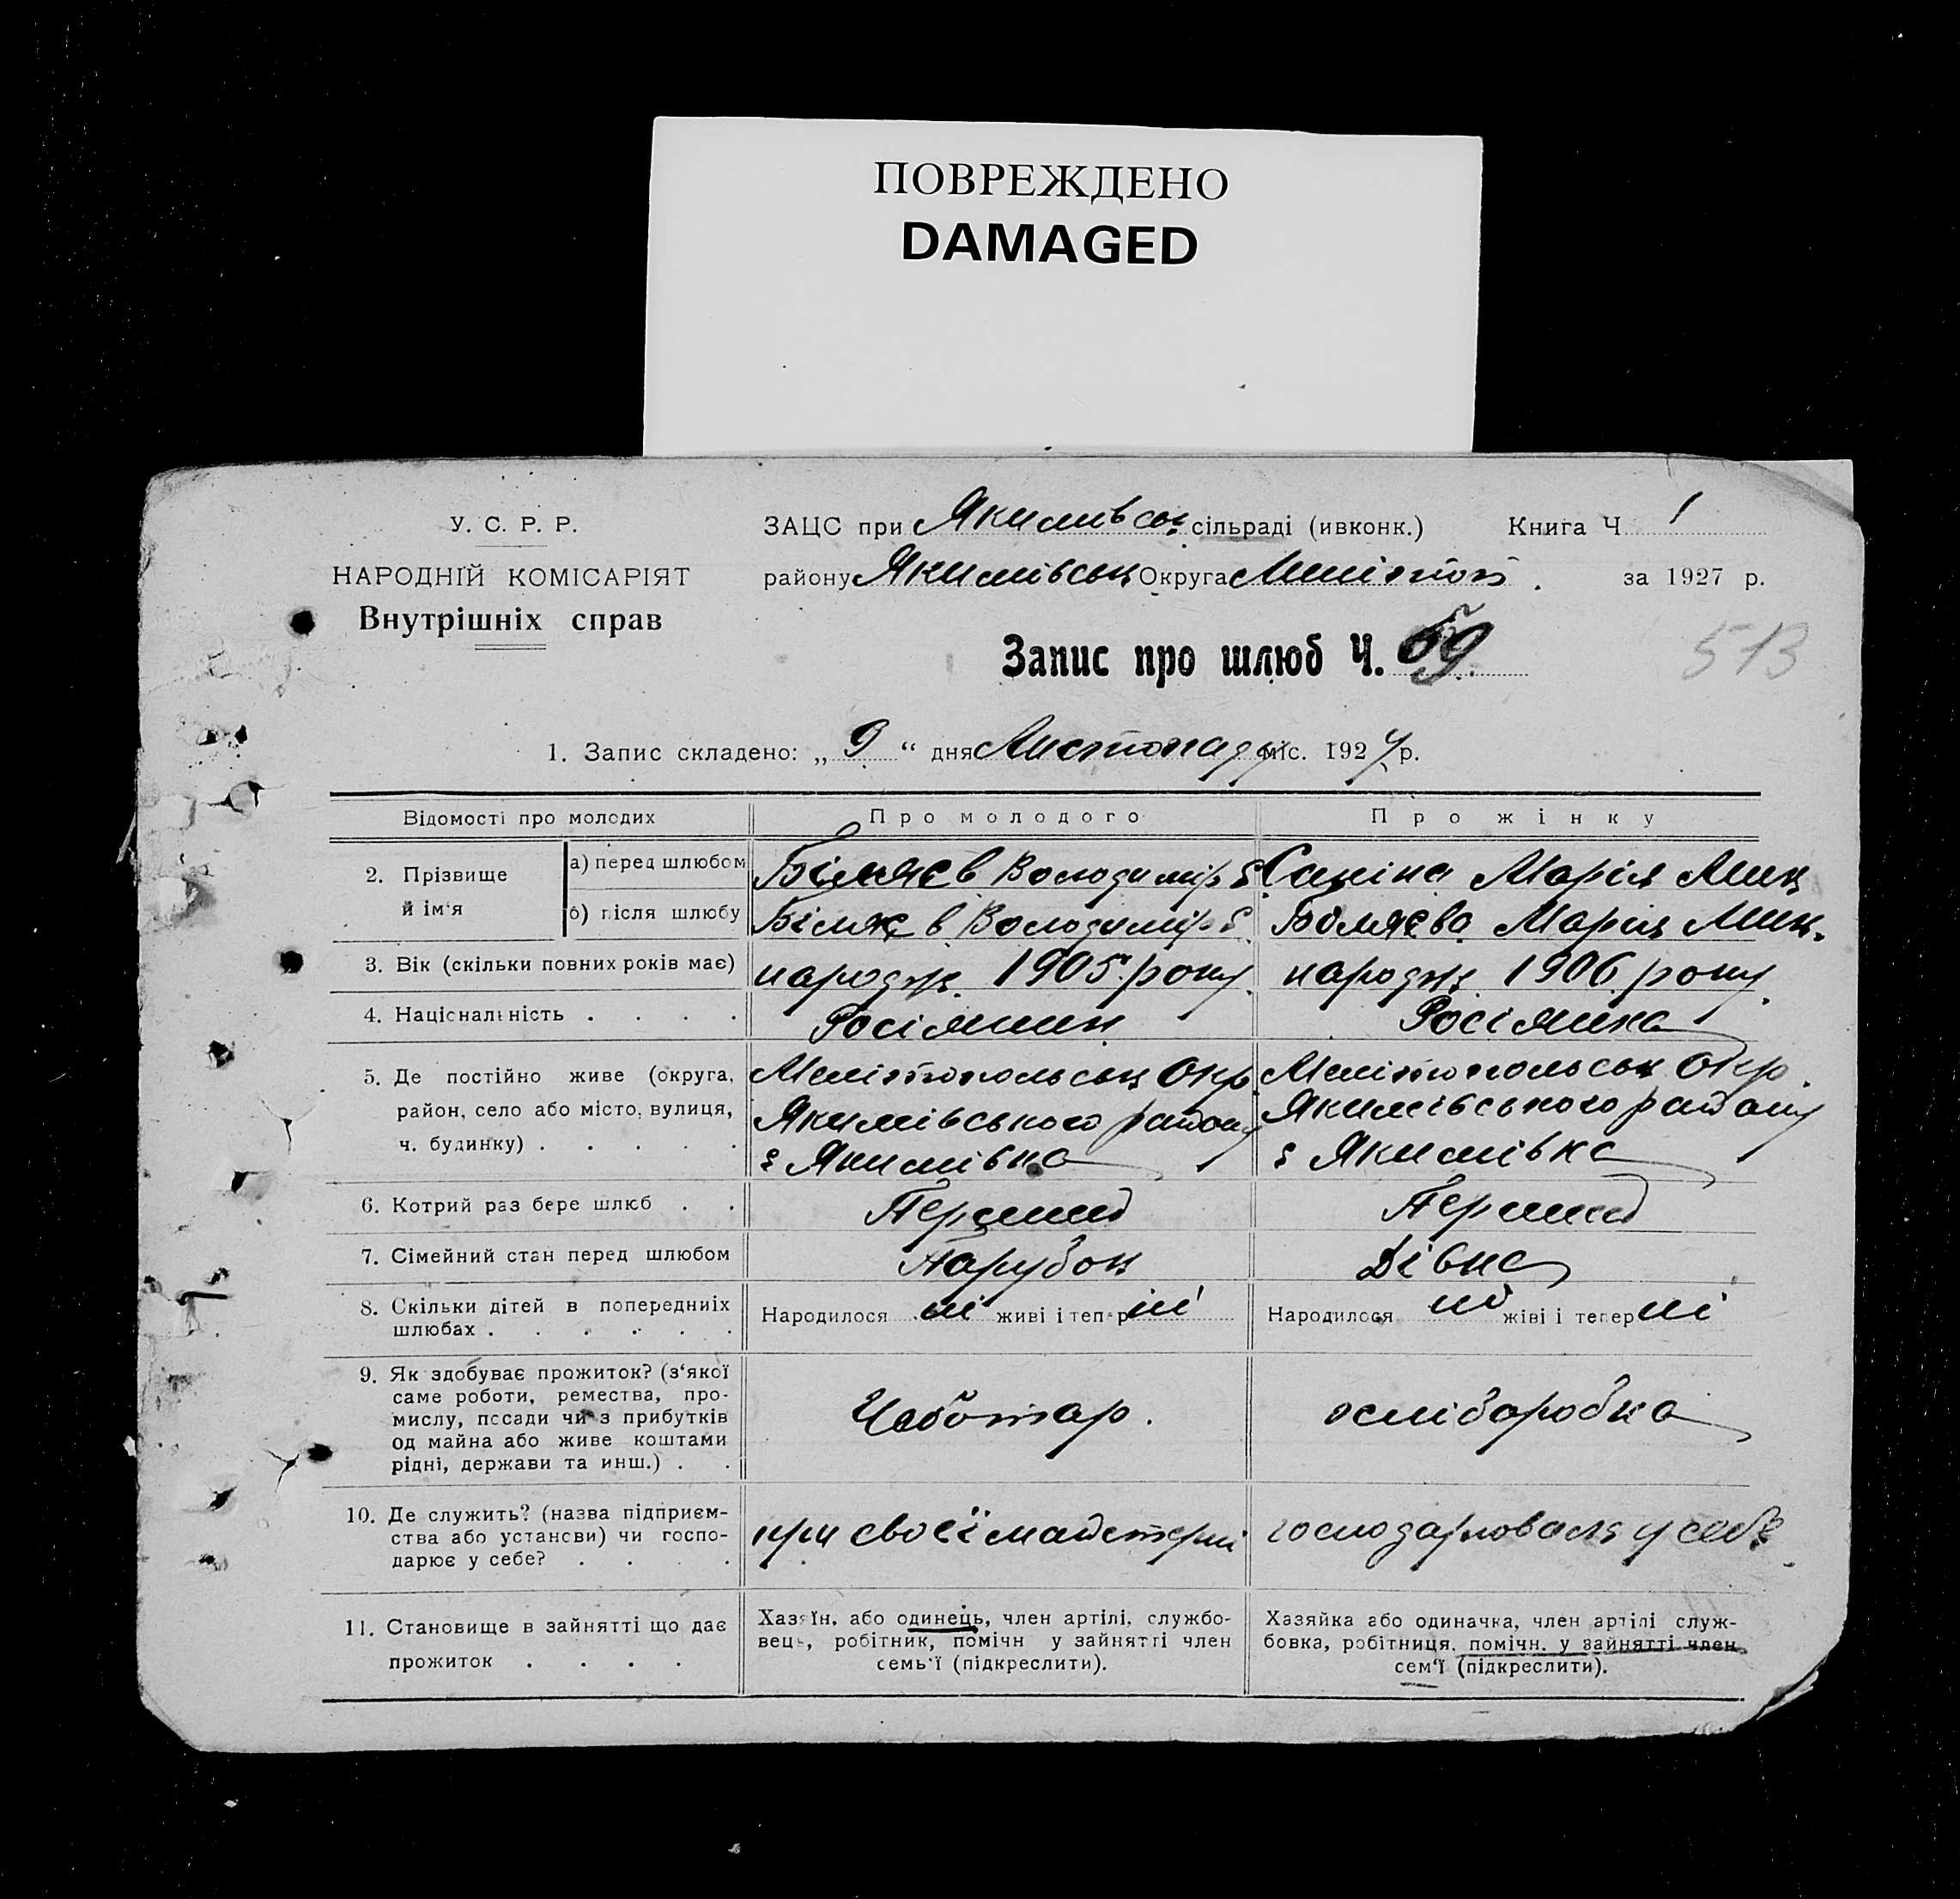 ПОВРЕЖДЕНО
DAMAGED
У. С. Р. Р.
НАРОДНІЙ КОМІСАРІЯТ
Внутрішніх справ
ЗАЦС при Якимівськ сільраді (ивконк.) Книга Ч 1
району Якимівськ Округа Меліітоп . за 1927 р.
Запис про шлюб Ч. 59
513
1. Запис складено: „ 9 “ дня Листопаду міс. 1927 р.
Відомості про молодих Про молодого Про жінку
2. Прізвище й ім'я
а) перед шлюбом Біляєв Володимір Є Саніна Марія Мик
б) після шлюбу Біляєв Володимір Є. Біляєва Марія Мик.
3. Вік (скільки повних років має) народж. 1905 року. народж. 1906 року.
4. Національність . . . . Росіянин Росіянка
5. Де постійно живе (округа, Мелітопольськ Окр. Мелітопольськ Окр.
район, село або місто, вулиця, Якимівського району Якимівського району
ч. будинку) . . . . . с Якимівка с Якимівка
6. Котрий раз бере шлюб . . Перший Перший
7. Сімейний стан перед шлюбом Парубок Дівка
8. Скільки дітей в попередниіх Народилося ні живі і тепер ні Народилося ні жіві і тепер ні
шлюбах . . . . . .
9. Як здобуває прожиток? (з‘якої
саме роботи, ремества, про-
мислу, посади чи з прибутків Чоботар. хліборобка
од майна або живе коштами
рідні, держави та инш.) . .
10. Де служить? (назва підприєм-
ства або установи) чи госпо- при своєї майстерні господарювала у себе.
дарює у себе? . . . .
11. Становище в зайнятті що дає
прожиток . . . .
Хазяїн, або одинець, член артілі, службо-
вець, робітник, помічн у зайнятті член
семь‘ї (підкреслити).
Хазяйка або одиначка, член артілі служ-
бовка, робітниця, помічн. у зайнятті член
сем‘ї (підкреслити).